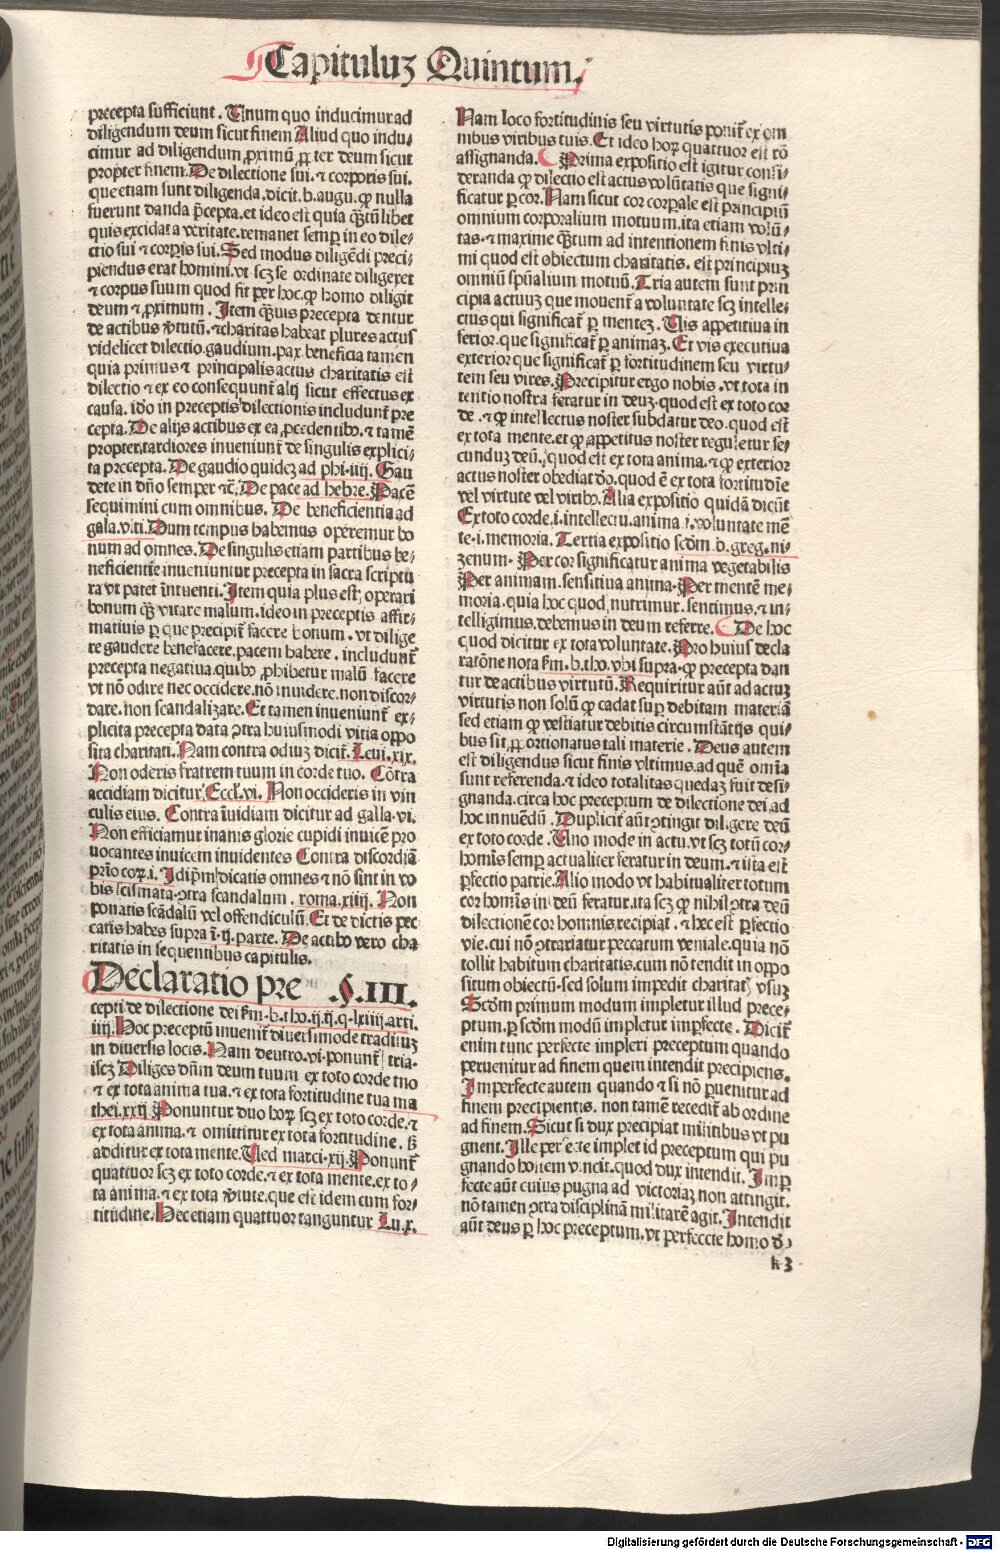 Capituluz Quintum.
precepta sufficiunt. Unum quo inducimur ad
diligendum deum sicut finem Aliud quo indu⸗
cimur ad diligendum ꝓximū ꝓpter deum sicut
propter finem. De dilectione sui. ⁊ corporis sui.
que etiam sunt diligenda. dicit. b. augu. ꝙ nulla
fuerunt danda p̄cepta. et ideo est quia q̄ꝫtūlibet
quis excidat a veritate. remanet semꝑ in eo dile⸗
ctio sui ⁊ corꝑis sui. Sed modus diligēdi preci⸗
piendus erat homini. vt scꝫ se ordinate diligeret
⁊ corpus suum quod fit per hoc. ꝙ homo diligit
deum ⁊ ꝓximum. Item q̄ꝫuis precepta dentur
de actibus v̓tutū. ⁊ charitas habeat plures actus
videlicet dilectio. gaudium. pax beneficia tamen
quia primus ⁊ principalis actus charitatis est
dilectio ⁊ ex eo consequunt̄ alij sicut effectus ex
causa. ido in preceptis dilectionis includunt̄ pre
cepta. De alijs actibus ex ea ꝓcedentibꝰ. ⁊ tamē
propter tardiores inueniunt̄ de singulis explici⸗
ta precepta. De gaudio quidez ad phi. iiij. Gau
dete in dn̄o semper ⁊c̄. De pace ad hebre. Pacē
sequimini cum omnibus. De beneficientia ad
gala. vlti. Dum tempus habemus operemur bo
num ad omnes. De singulis etiam partibus be⸗
neficientie inueniuntur precepta in sacra scriptu
ra vt patet intuenti. Item quia plus est; operari
bonum q̄ꝫ vitare malum. ideo in preceptis affir⸗
matiuis ꝑ que precipit̄ facere bonum. vt dilige
re gaudere benefacere. pacem habere. includunt̄
precepta negatiua. quibꝰ ꝓhibetur malū facere
vt nō odire nec occidere. nō inuidere. non discor⸗
dare. non scandalizare. Et tamen inueniunt̄ ex⸗
plicita precepta data ꝯtra huiusmodi vitia oppo
sita charitati. Nam contra odiuz dicit̄. Leui. xix.
Non oderis fratrem tuum in corde tuo. Cōtra
accidiam dicitur. Eccl̓. vi. Non occideris in vin
culis eius. Contra īuidiam dicitur ad galla. vi.
Non efficiamur inanis glorie cupidi inuicē pro
uocantes inuicem inuidentes Contra discordiā
prīo coꝝ. i. Idip̄m dicatis omnes ⁊ nō sint in vo
bis scismata. ꝯtra scandalum. roma. xiiij. Non
ponatis scādalū vel offendiculū. Et de dictis pec
catis habes supra ī. ij. parte. De actibꝰ vero cha
ritatis in sequentibus capitulis.
Declaratio pre .§.III.
cepti de dilectione dei km̄. b. tho. ij. ij. q. lxiiij. arti.
iiij. Hoc preceptū inuenit̄ diuersimode tradituz
in diuersis locis. Nam deutro. vi. ponunt̄ tria.
iscꝫ Diliges dn̄m deum tuum ex toto corde tuo
⁊ ex tota anima tua. ⁊ ex tota fortitudine tua ma
thei. xxij. Ponuntur duo hoꝝ scꝫ ex toto corde. ⁊
ex tota anima. ⁊ omittitur ex tota fortitudine. sꝫ
additur ex tota mente. Sed marci. xij. Ponunt̄
quattuor scꝫ ex toto corde. ⁊ ex tota mente. ex to⸗
ta anima. ⁊ ex tota v̓tute. que est idem cum for⸗
titudine. Hec etiam quattuor tanguntur Lu. x.
Nam loco fortitudinis seu virtutis ponit̄ ex om
nibus viribus tuis. Et ideo hoꝝ quattuor est rō
assignanda. Prima expositio est igitur consi⸗
deranda ꝙ dilectio est actus volūtatis que signi⸗
ficatur ꝑ cor. Nam sicut cor corꝑale est principiū
omnium corporalium motuum. ita etiam volū⸗
tas. ⁊ maxime q̄ꝫtum ad intentionem finis vlti⸗
mi quod est obiectum charitatis. est principiuꝫ
omniū sp̄ualium motuū. Tria autem sunt prin
cipia actuuꝫ que mouent̄ a voluntate scꝫ intelle⸗
ctus qui significat̄ ꝑ menteꝫ. Uis appetitiua in
ferior. que significat̄ ꝑ animaꝫ. Et vis executiua
exterior que significat̄ ꝑ fortitudinem seu virtu⸗
tem seu vires. Precipitur ergo nobis. vt tota in
tentio nostra feratur in deuꝫ. quod est ex toto cor
de. ⁊ ꝙ intellectus noster subdatur deo. quod est
ex tota mente. et ꝙ appetitus noster reguletur se⸗
cunduꝫ deū. quod est ex tota anima. ⁊ ꝙ exterior
actus noster obediat dō. quod ē ex tota fortitudīe
vel virtute vel viribꝰ. Alia expositio quidā dicūt
Ex toto corde. i. intellectu. anima. i. voluntate mē
te. i. memoria. Tertia expositio scd̄m. b. greg. ni⸗
zenum. Per cor significatur anima vegetabilis
Per animam. sensitiua anima. Per mentē me⸗
moria. quia hoc quod nutrimur. sentimus. ⁊ in⸗
telligimus. debemus in deum referre. De hoc
quod dicitur ex tota voluntate. Pro huius decla
ratōne nota km̄. b. tho. vbi supra. ꝙ precepta dan
tur de actibus virtutū. Requiritur aūt ad actuꝫ
virtutis non solū ꝙ cadat suꝑ debitam materiā
sed etiam ꝙ vestiatur debitis circumstātijs qui⸗
bus sit ꝓportionatus tali materie. Deus autem
est diligendus sicut finis vltimus. ad quē omīa
sunt referenda. ⁊ ideo totalitas quedaꝫ fuit desi⸗
gnanda. circa hoc preceptum de dilectione dei ad
hoc innuēdū. Duplicit̄ aūt ꝯtingit diligere deū
ex toto corde. Uno mode in actu. vt scꝫ totū cor⸗
hominis semꝑ actualiter feratur in deum. ⁊ ista est
ꝑfectio patrie. Alio modo vt habitualiter totum
cor homīs in deū feratur. ita scꝫ ꝙ nihil ꝯtra deū
dilectionē cor hominis recipiat. ⁊ hec est ꝑfectio
vie. cui nō ꝯtrariatur peccatum veniale. quia nō
tollit habitum charitatis. cum nō tendit in oppo
situm obiectū. sed solum impedit charitatꝭ vsuꝫ
Scd̄m primum modum impletur illud prece⸗
ptum. ꝑ scd̄m modū impletur imꝑfecte. Dicit̄
enim tunc perfecte impleri preceptum quando
peruenitur ad finem quem intendit precipiens.
Imperfecte autem quando ⁊ si nō ꝑuenitur ad
finem precipientis. non tamē recedit̄ ab ordine
ad finem. Sicut si dux precipiat militibus vt pu
gnent. Ille perfecte implet id preceptum qui pu
gnando hostem vincit. quod dux intendit. Imꝑ
fecte aūt cuius pugna ad victoriaꝫ non attingit.
nō tamen ꝯtra disciplinā militarē agit. Intendit
aūt deus ꝑ hoc preceptum. vt perfeccte homo dō
k 3
Digitalisierung gefördert durch die Deutsche Forschungsgemeinschaft - DFG